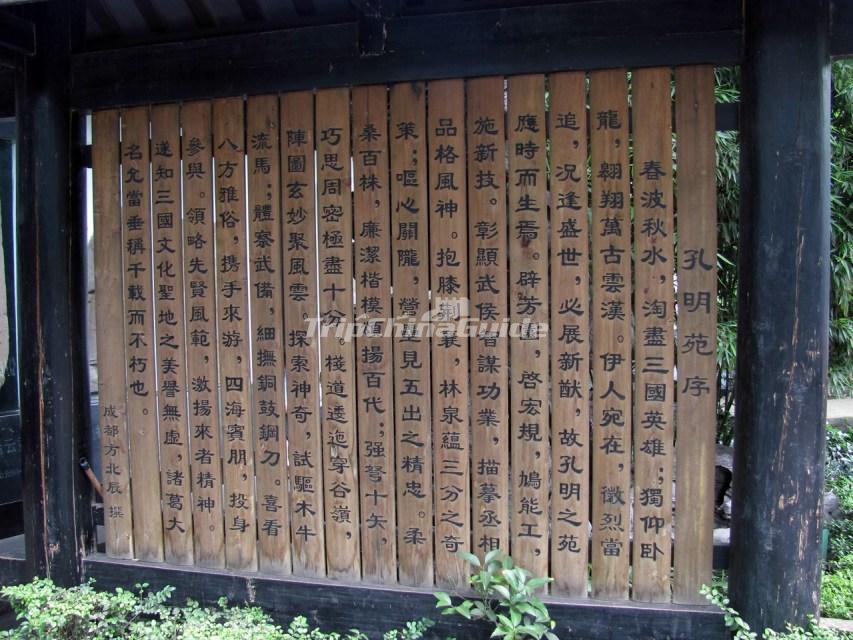 孔明苑序
春波秋水，淘盡三國英雄；獨仰卧
龍，翱翔萬古雲漢。伊人宛在，徽烈當
追，况逢盛世，必展新猷，故孔明之苑
應時而生焉。辟芳園，啓宏規，鳩能工，
施新技。彰顯武侯智謀功業，描摹丞相
品格風神。抱膝荆襄，林泉蘊三分之奇
策；嘔心關隴，營壘見五出之精忠。柔
桑百株，廉潔楷模揚百代；強弩十矢，
巧思周密極盡十分。棧道逶迤穿谷嶺，
陣圖玄妙聚風雲。探索神奇，試驅木牛
流馬；體察武備，細撫銅鼓鋼刀。喜看
八方雅俗，携手來游，四海賓朋，投身
參與。領略先賢風範，激揚來者精神。
遂知三國文化聖地之美譽無虛，諸葛大
名允當垂稱千載而不朽也。
成都方北辰撰
TripChinaGuide